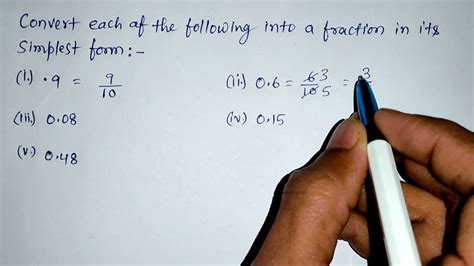 Convert each af the following into a fraction in its
Simplest form:-
(i.) .9 = 9/10
(ii.) 0.6 = 6̶ 3/1̶0̶ 5 = 3
(iii.) 0.08
(iv.) 0.15
(v.) 0.48